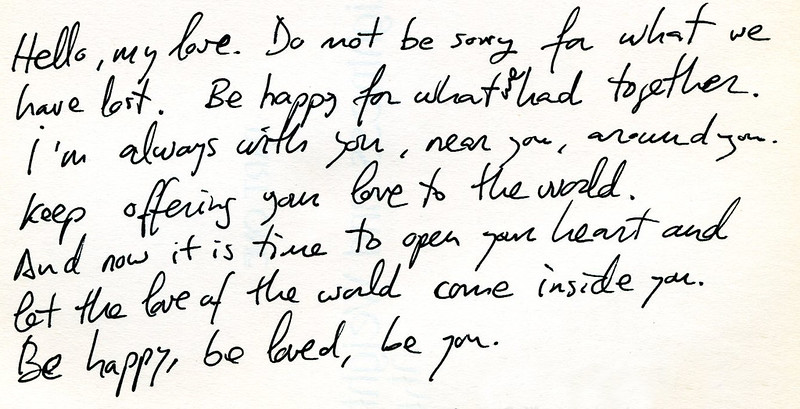 Hello, my love. Do not be sorry for what we
have lost. Be happy for what we had together.
I'm always with you, near you, around you.
Keep offering your love to the world.
And now it is time to open your heart and
let the love of the world come inside you.
Be happy, be loved, be you.